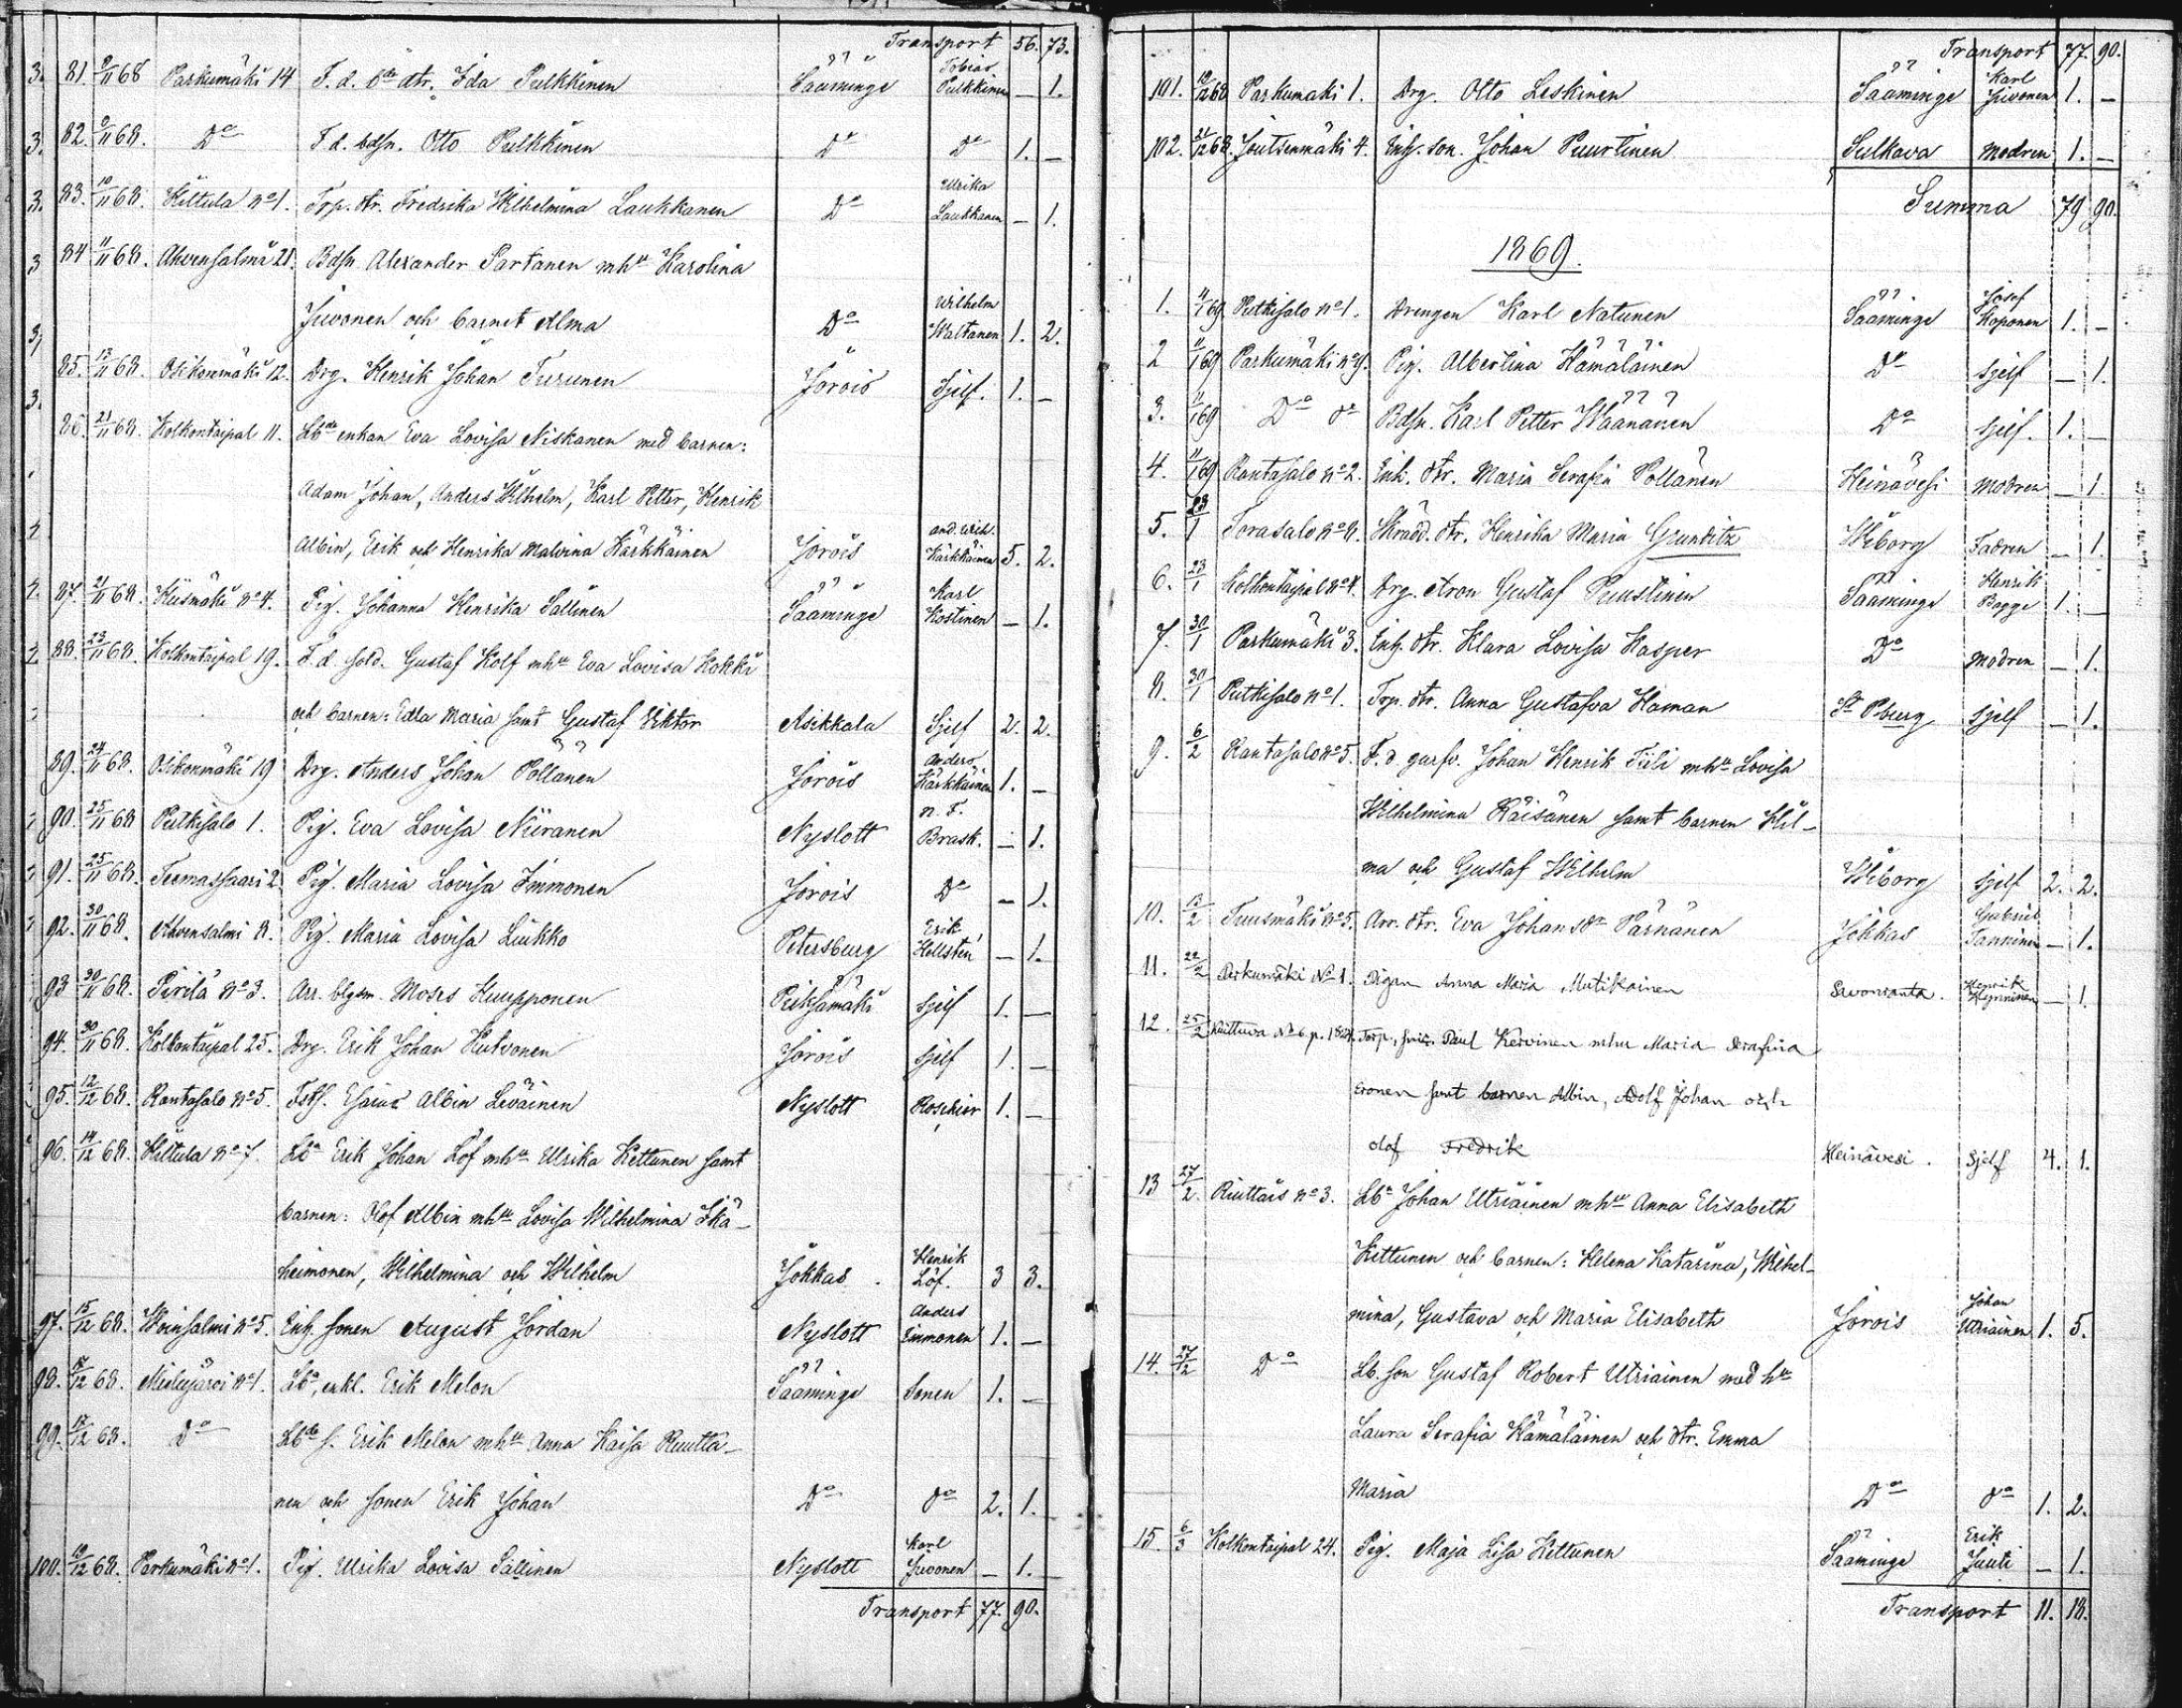 Transport 56. 73.
3. 81. 9/11 68 Parkumäki 14 F. d. Bde dtr. Ida Pulkkinen Sääminge Tobias Pulkkinen — 1.
3. 82. 9/11 68. Do F. d. bdsn. Otto Pulkkinen Do Do 1. —
3. 83. 10/11 68. Kiltula No 1. Trp. dtr. Fredrika Wilhelmina Laukkanen Do Ulrika Laukkanen — 1.
3 84 11/11 68. Ahvensalmi 21. Bdsn Alexander Partanen mhu Karolina
Juvonen och barnet Alma Do Wilhelm Waltanen 1. 2.
85. 13/11 68. Osikonmäki 12. Drg. Henrik Johan Turunen Jorois Sjelf. 1. —
3. 86. 21/11 68. Kolkontaipal 11. Lbde enkan Eva Lovisa Niskanen med barnen:
Adam Johan, Anders Wilhelm, Karl Petter, Henrik
Albin, Erik och Henrika Malvina Kärkkäinen Jorois And. Wilh. Kärkkäinen 5. 2.
87. 21/11 68. Kiismäki No 4. Pig. Johanna Henrika Sallinen Sääminge Karl Kostinen — 1.
88. 23/11 68. Kolkontaipal 19. F. d. sold. Gustaf Kolf mhu Eva Lovisa Kokki
och barnen: Edla Maria samt Gustaf Viktor Asikkala Sjelf 2. 2.
89. 24/11 68. Osikonmäki 19 Drg. Anders Johan Pöllänen Jorois Anders Kärkkäinen 1. —
90. 25/11 68 Putkisalo 1. Pig. Eva Lovisa Niiranen Nyslott n. F. Brask. — 1.
91. 25/11 68. Tuomassaari 2. Pig. Maria Lovisa Immonen Jorois Do — 1.
92. 30/11 68. Ahvensalmi 8. Pig. Maria Lovisa Liukko Petersburg Erik Hellstén — 1.
93 30/11 68. Pirilä No 3. Arr. blgsm. Moses Kuupponen Pieksämäki Sjelf 1. —
94. 30/11 68. Kolkontaipal 25. Drg. Erik Johan Hukvonen Jorois Sjelf 1. —
95. 12/12 68. Rantasalo No 5. Esaias Albin Leväinen Nyslott Roschier 1. —
96. 14/12 68. Kiltula No 7. Lbn Erik Johan Löf mhu Ulrika Kettunen samt
barnen: Olof Albin mhu Lovisa Wilhelmina Ikä-
heimonen, Wilhelmina och Wilhelm Jokkas. Henrik Löf. 3 3.
97. 15/12 68. Weinsalmi No 5. Enk. sonen August Jordan Nyslott Anders Immonen 1. —
98. 17/12 68. Mielujärvi No 1. Lbn, enkl. Erik Melon Sääminge Sonen 1. —
99. 17/12 68. Do Lbde s. Erik Melon mhu Anna Kaisa Ruutta-
nen och sonen Erik Johan Do do 2. 1.
100. 19/12 68. Parkumäki No 1. Pig. Ulrika Lovisa Sallinen Nyslott Karl Juvonen — 1.
Transport 77. 90.
Transport 77. 90.
101. 19/12 68 Parkumäki 1. Drg. Otto Leskinen Sääminge Karl Juvonen 1. —
102. 21/12 68. Joutsenmäki 4. Enk. son. Johan Puurtinen Sulkava modren 1. —
Summa 79 90.
1869.
1. 11/1 69 Putkisalo No 1. Drengen Karl Natunen Sääminge Josef Koponen 1. —
2 11/1 69 Parkumäki No 9. Pig. Albertina Hämäläinen Do Sjelf — 1.
3. 11/1 69 Do do Bdsn. Karl Petter Wäänänen Do Sjelf. 1. —
4. 11/1 69 Rantasalo No 2. Enk. dtr. Maria Serafia Pöllänen Heinävesi modren — 1.
5. 23/1 Torasalo No 8. Skrädd. dtr. Henrika Maria Grunditz Wiborg Fadren — 1.
6. 23/1 Kolkontaipal No 4. Drg. Aron Gustaf Puustinen Sääminge Henrik Bagge 1. —
7. 30/1 Parkumäki 3. Enk. dtr. Klara Lovisa Kasper Do modren — 1.
8. 30/1 Putkisalo No 1. Trp. dtr. Anna Gustafva Haman St Pburg Sjelf — 1.
9. 6/2 Rantasalo No 5. F. d. garfv. Johan Henrik Tiili mhu Lovisa
Wilhelmina Räisänen samt barnen Hil-
ma och Gustaf Wilhelm Wiborg Sjelf 2. 2.
10. 13/2 Tuusmäki No 5. Arr. dtr. Eva Johansdr Pärnänen Jokkas Gabriel Tanninen — 1.
11. 22/2 Parkumäki No 1. Pigan Anna Maria Mutikainen Savonranta. Henrik Hynninen — 1.
12. 25/2 No 6 Torp. Paul Kervinen mhu Maria Serafina
Eronen samt barnen Albin, Adolf Johan och
Olof Fredrik Heinävesi. Sjelf 4. 1.
13 27/2. Ruuttais No 3. Lbn Johan Utriainen mhu Anna Elisabeth
Kettunen och barnen: Helena Katarina, Wilhel-
mina, Gustava och Maria Elisabeth Jorois Johan Utriainen 1. 5.
14. 27/2 Do Lb. son Gustaf Robert Utriainen med hu
Laura Serafia Hämäläinen och dtr. Emma
Maria Do do 1. 2.
15. 6/3 Kolkontaipal 24. Pig. Maja Lisa Kettunen Sääminge Erik Juuti — 1.
Transport 11. 18.